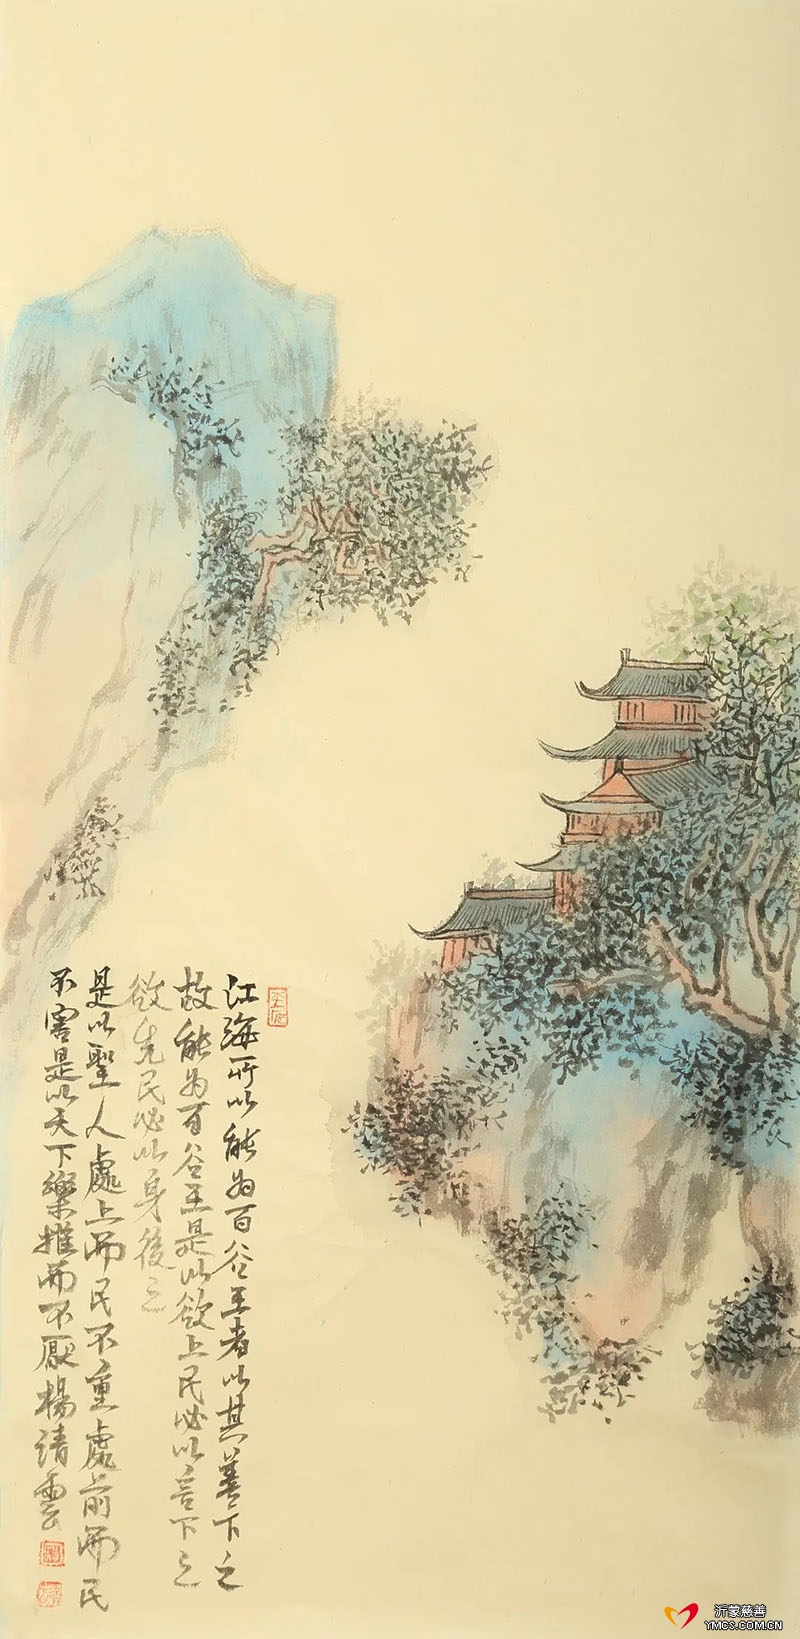 江海所以能为百谷王者以其善下之
故能为百谷王是以欲上民必以言下之
欲先民必以身後之
是以聖人處上而民不重處前而民
不害是以天下樂推而不厭楊清雲
沂蒙慈善
YMCS.COM.CN